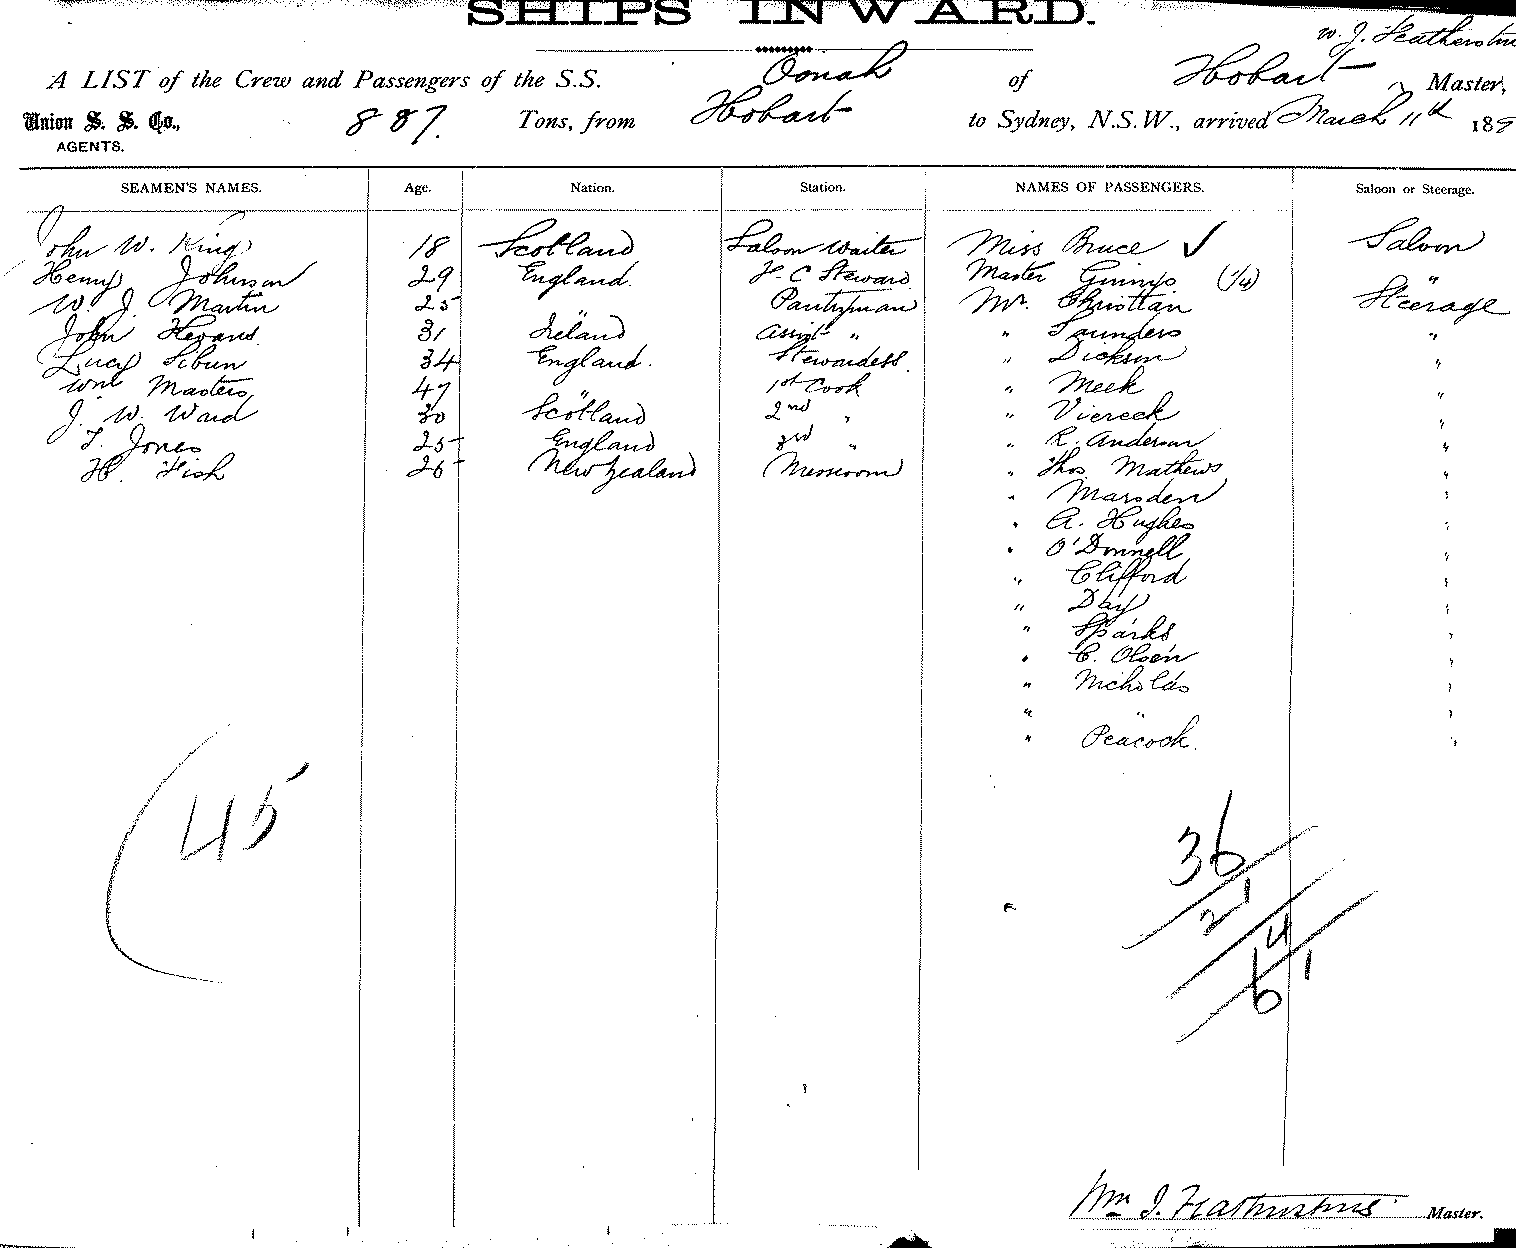 SHIPS INWARD.
W. J. Featherstone
A LIST of the Crew and Passengers of the S.S. Oonah of Hobart, Master,
Union S. S. Co., 887. Tons, from Hobart to Sydney, N.S.W., arrived March 11th 189
AGENTS.
SEAMEN'S NAMES. Age. Nation. Station. NAMES OF PASSENGERS. Saloon or Steerage.
John W. King 18 Scotland Saloon Waiter Miss Bruce ✓ Saloon
Henry Johnson 29 England. F. C Steward Master Ginnys (1/4) "
W. J. Martin 25 " Pantryman Mr. Christian Steerage
John Hevans 31 Ireland Assist " " Saunders "
Lucy Sibun 34 England. Stewardess. " Dickson "
Wm Masters 47 " 1st Cook " Meek "
J. W. Ward 30 Scotland 2nd " " Viereck "
T. Jones 25 England 3rd " " R. Anderson "
H. Fish 26 New Zealand Messroom " Thos. Mathews "
" Marsden "
" A. Hughes "
" O'Donnell "
" Clifford "
" Day "
" Sparks "
" C. Olsen "
" Nicholas "
" " "
" Peacock. "
(45
36
21
4
61
Wm J. Featherstone Master.